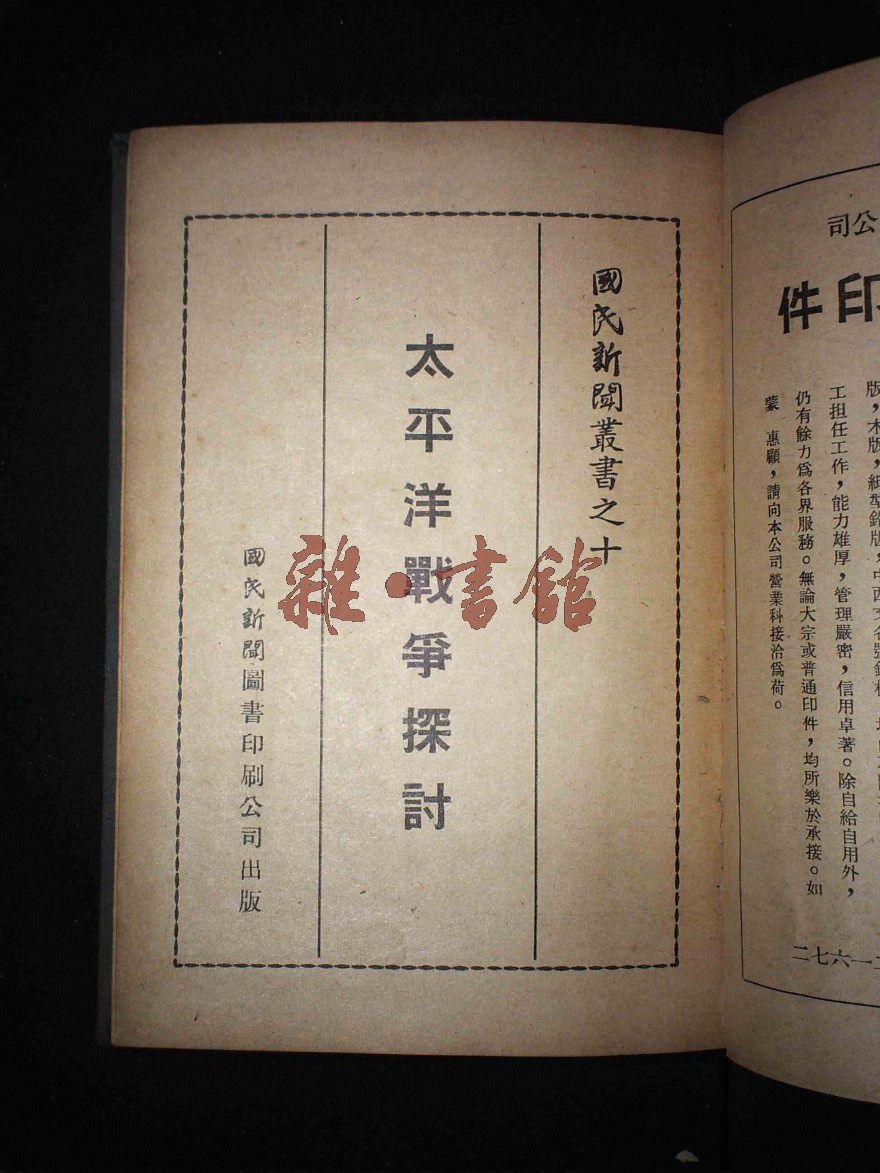 國民新聞叢書之十
太平洋戰爭探討
國民新聞圖書印刷公司出版
雜·書館
公司
印件
工担任工作，能力雄厚，管理嚴密，信用卓著。除自給自用外，
仍有餘力爲各界服務。無論大宗或普通印件，均所樂於承接。如
蒙 惠顧，請向本公司營業科接洽爲荷。
一六七二